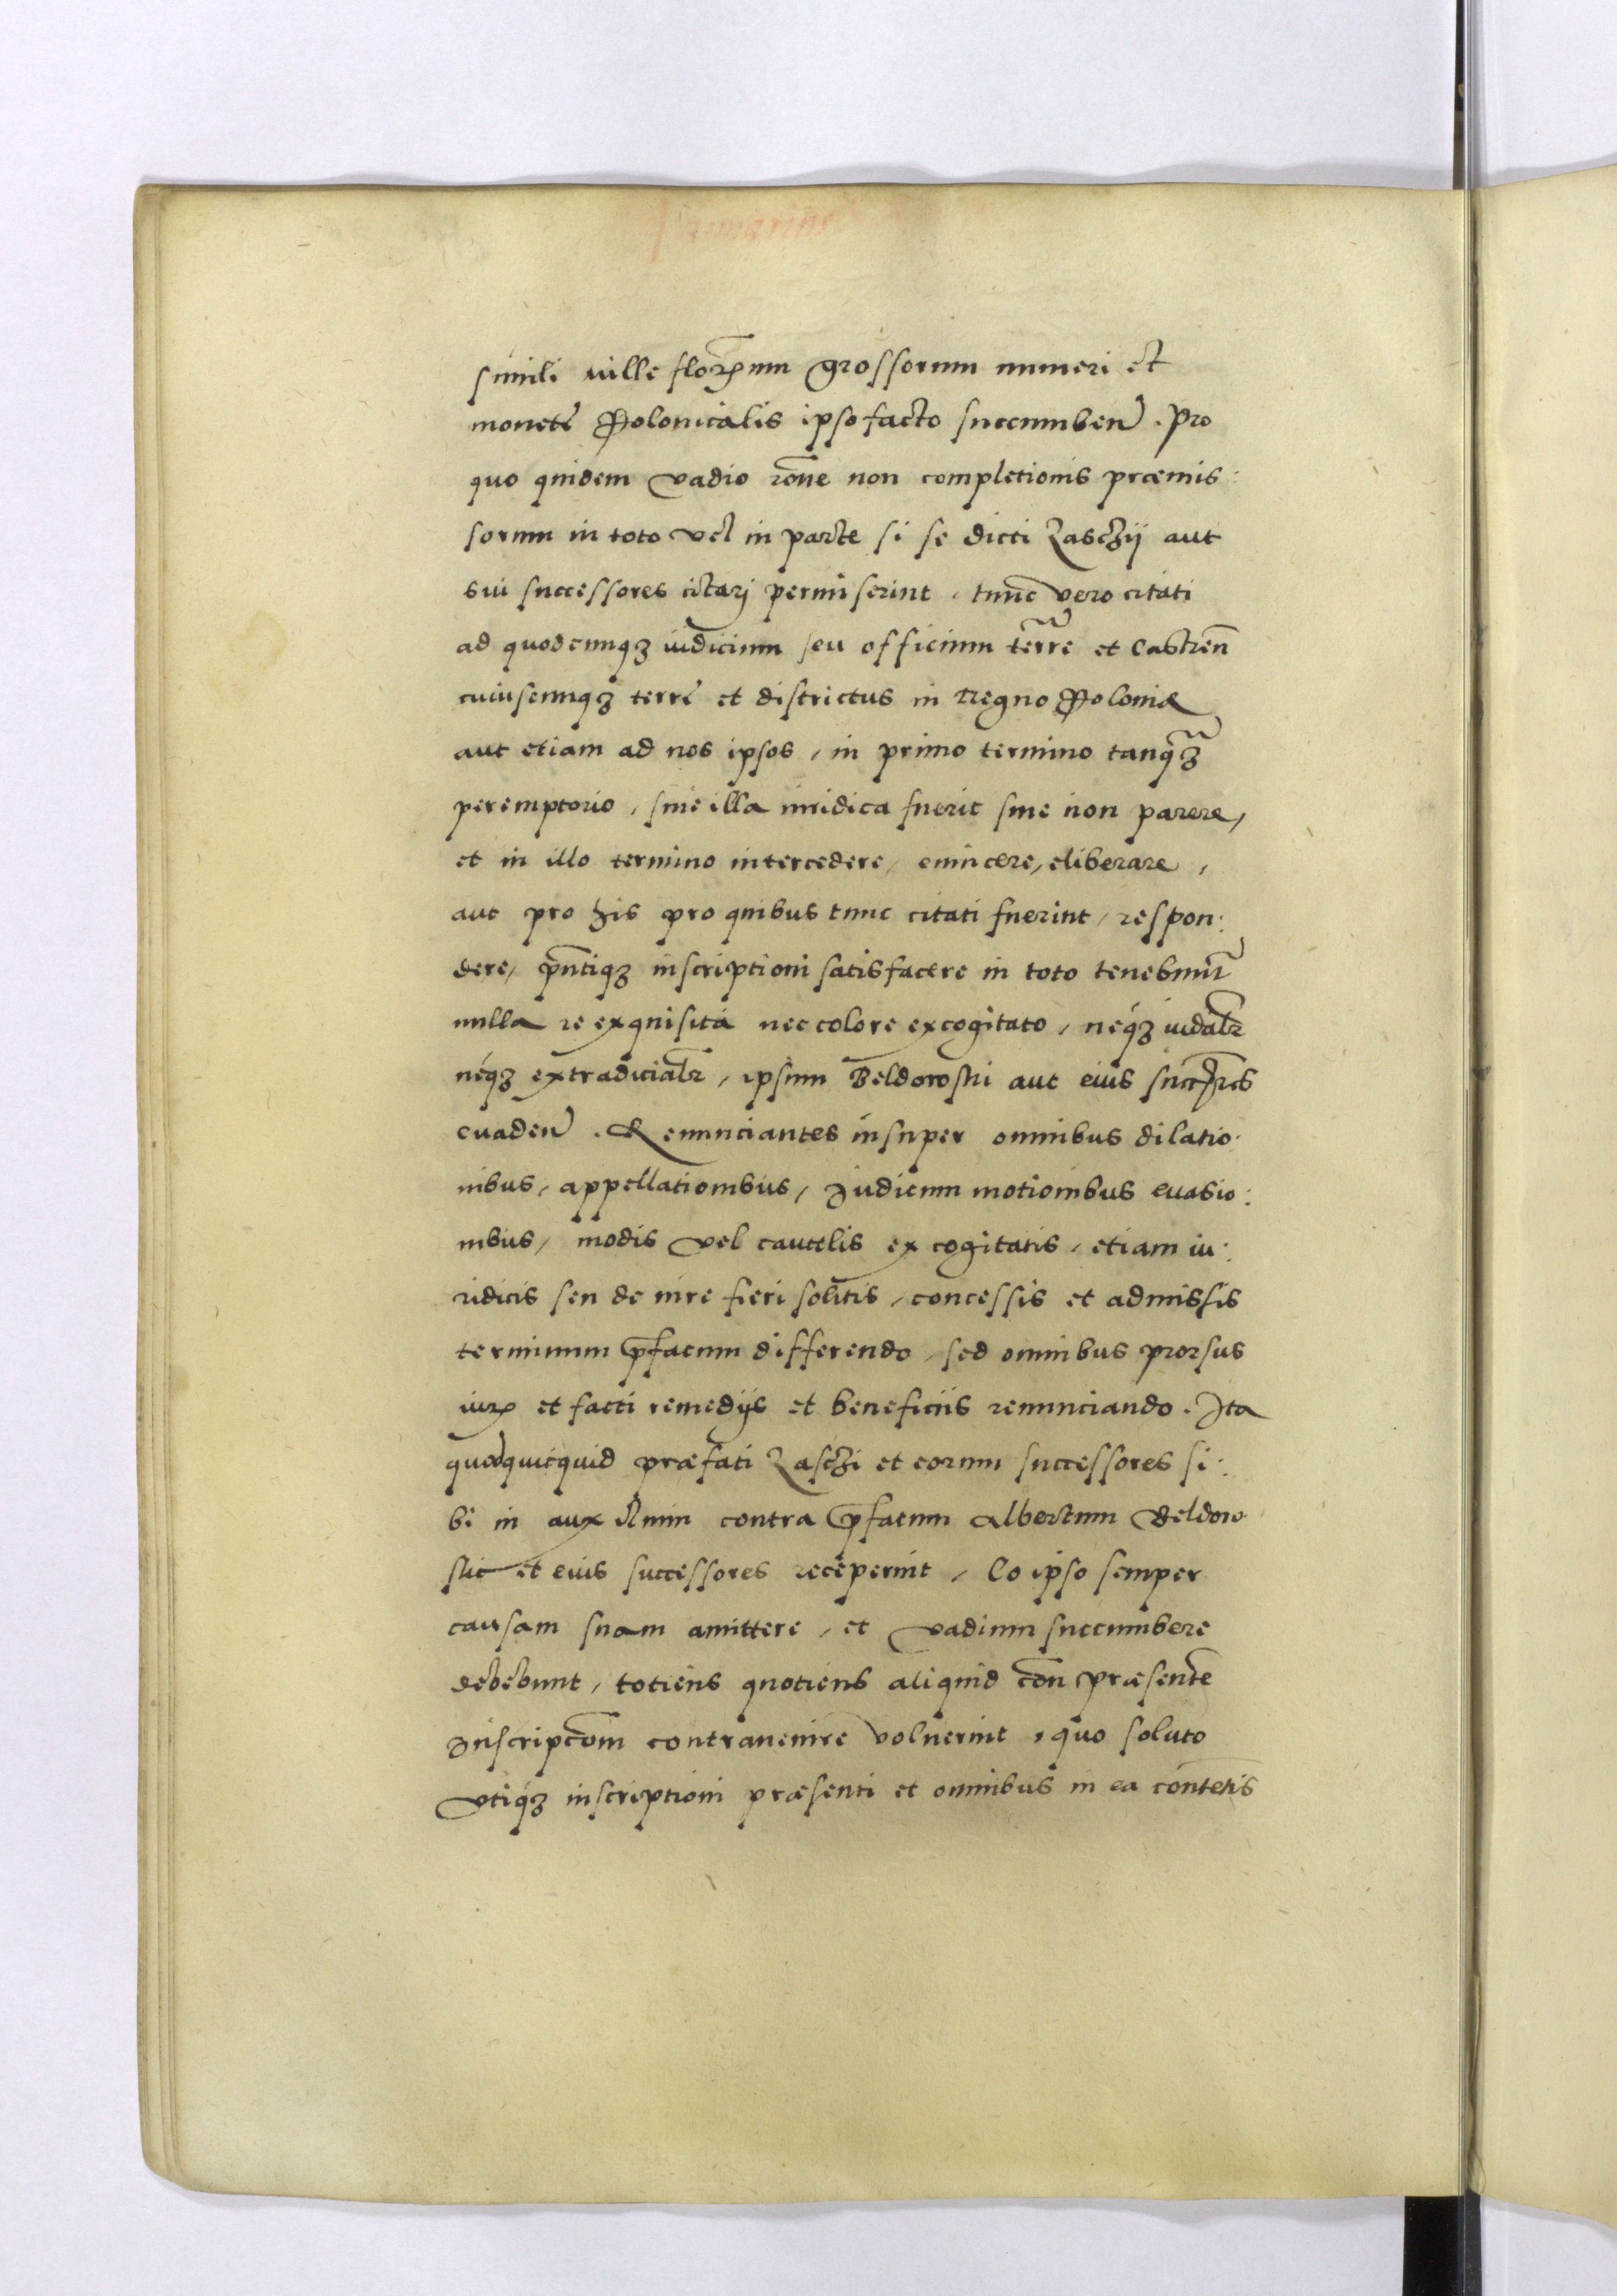 simili mille florenum grossorum numeri et
monetę Polonicalis ipso facto succumben̄. Pro
quo quidem vadio rōne non completionis præmis:
sorum in toto vel in parte si se dicti Zaschÿ aut
sui successores citarj permiserint, tunc vero citati
ad quodcunqȝ iudicium seu officium terr̄e et Castreñ
cuiuscunqȝ terrę et districtus in Regno Poloniæ
aut etiam ad nos ipsos, in primo termino tanqȝ
peremptorio, siue illa iuridica fuerit siue non parere,
et in illo termino intercedere, euincere, eliberare,
aut pro his pro quibus tunc citati fuerint, respon:
dere, pñtiqȝ inscriptioni satisfacere in toto tenebunt̄
nulla re exquisita nec colore excogitato, néqȝ iudālr
néqȝ extradicialr, ipsum Beldowski aut eius succr̄es
euaden̄. Renunciantes insuper omnibus dilatio:
nibus, appellationibus, Judicum motionibus euasio:
nibus, modis vel cautelis excogitatis, etiam iu:
ridicis seu de iure fieri solitis, concessis et admissis
terminum p̄fatum differendo, sed omnibus prorsus
iur̄ et facti remedÿs et beneficiis renunciando. Ita
quod quicquid præfati Zaschi et eorum successores si:
bi in auxilium contra p̄fatum Albertum Beldow
ski et eius successores receperint, Eo ipso semper
causam suam amittere, et vadium succumbere
debebunt, totiens quotiens aliquid con̄ præsente
Inscripcōm contrauenire voluerint, quo soluto
vtiqȝ inscriptioni præsenti et omnibus in ea contetis